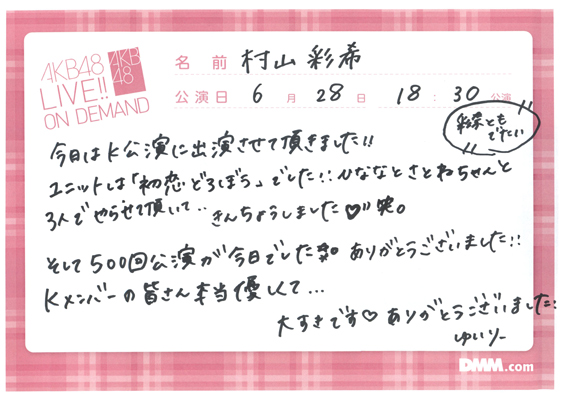 AKB48
LIVE!!
ON DEMAND
AKB
48
名前 村山 彩希
公演日 6月 28日 18:30 公演
彩希とも
でたい
今日はK公演に出演させて頂きました!!
ユニットは「初恋どろぼう」でした!! ひななとさとねちゃんと
3人でやらせて頂いて..きんちょうしました♡”笑。
そして500回公演が今日でした ありがとうございました!!
Kメンバーの皆さん本当優しくて...
大すきです♡ ありがとうございました:
ゆいりー
DMM.com